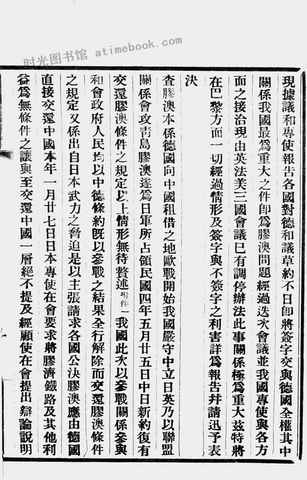 时光图书馆 atimebook.com
现據議和專使報告各國對德和議草約不日即將簽字交與德國全權其中
關係我國最為重大之件即為膠澳問題經過迭次會議並我國專使與各方
面之接洽現由英法美三國會議已有調停辦法此事關係極為重大茲特將
在巴黎方面一切經過情形及簽字與不簽字之利害詳為報告幷請迅予表
決
查膠澳本係德國向中國租借之地歐戰開始我國嚴守中立日英乃以聯盟
關係會攻青島膠澳遂為日軍所占領民國四年五月廿五日中日新約復有
交還膠澳條件之規定以上情形無待贅述附件一我國此次以參戰關係參與
和會政府人民均以中德條約旣以參戰之結果全行解除而交還膠澳條件
之規定又係出自日本武力之脅迫是以主張請求各國公決膠澳應由德國
直接交還中國本年一月廿七日日本專使在會要求將膠濟鐵路及其他利
益為無條件之讓與至交還中國一層絕不提及經顧使在會提出辯論說明